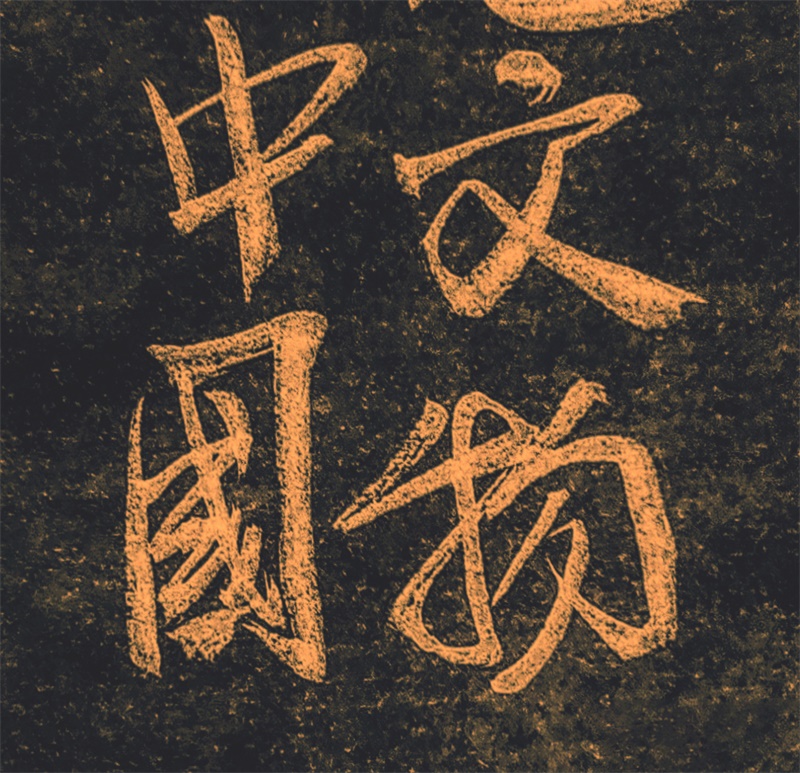 文物
中國